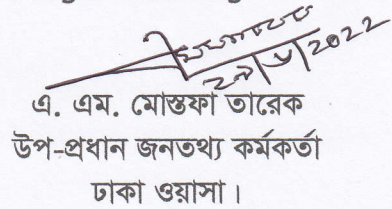 এ. এম. মোস্তফা তারেক
উপ-প্রধান জনতথ্য কর্মকর্তা
ঢাকা ওয়াসা।